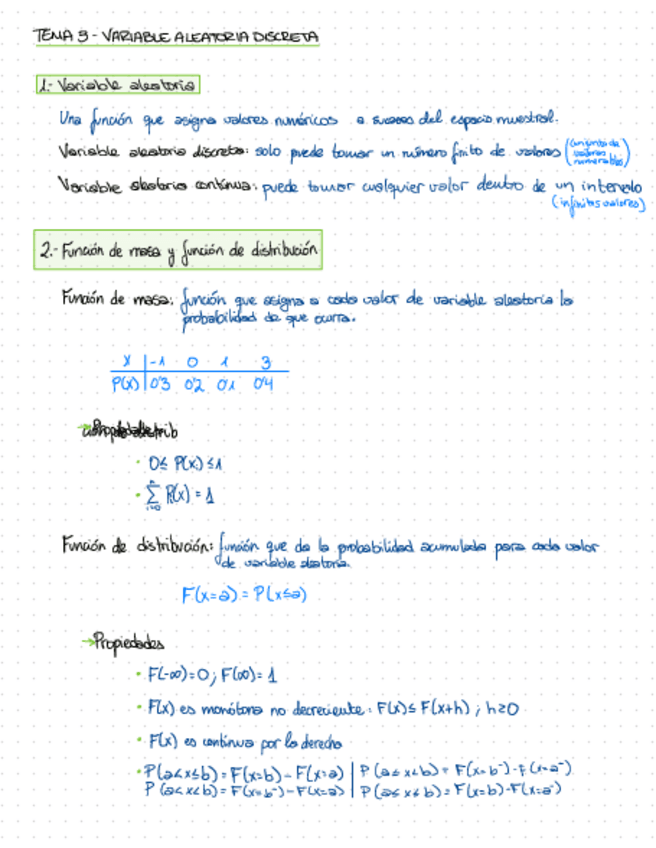 TEMA 3 - VARIABLE ALEATORIA DISCRETA
1.- Variable aleatoria
Una función que asigna valores numéricos a sucesos del espacio muestral.
Variable aleatoria discreta: solo puede tomar un número finito de valores (conjunto de valores numerables)
Variable aleatoria continua: puede tomar cualquier valor dentro de un intervalo
(infinitos valores)
2.- Función de masa y función de distribución
Función de masa: función que asigna a cada valor de variable aleatoria la
probabilidad de que ocurra.
X | -1 0 1 3
P(X) | 0'3 0'2 0'1 0'4
→ Propiedades
· 0 ≤ P(xi) ≤ 1
· ∑ⁿᵢ₌₀ Pi(x) = 1
Función de distribución: función que da la probabilidad acumulada para cada valor
de variable aleatoria.
F(x=a) = P(x≤a)
→ Propiedades
· F(-∞)=0; F(∞)=1
· F(x) es monótona no decreciente: F(x) ≤ F(x+h); h≥0
· F(x) es continua por la derecha
· P(a<x≤b) = F(x=b) - F(x=a) | P(a≤x<b) = F(x=b⁻) - F(x=a⁻)
P(a<x<b) = F(x=b⁻) - F(x=a) | P(a≤x≤b) = F(x=b) - F(x=a⁻)